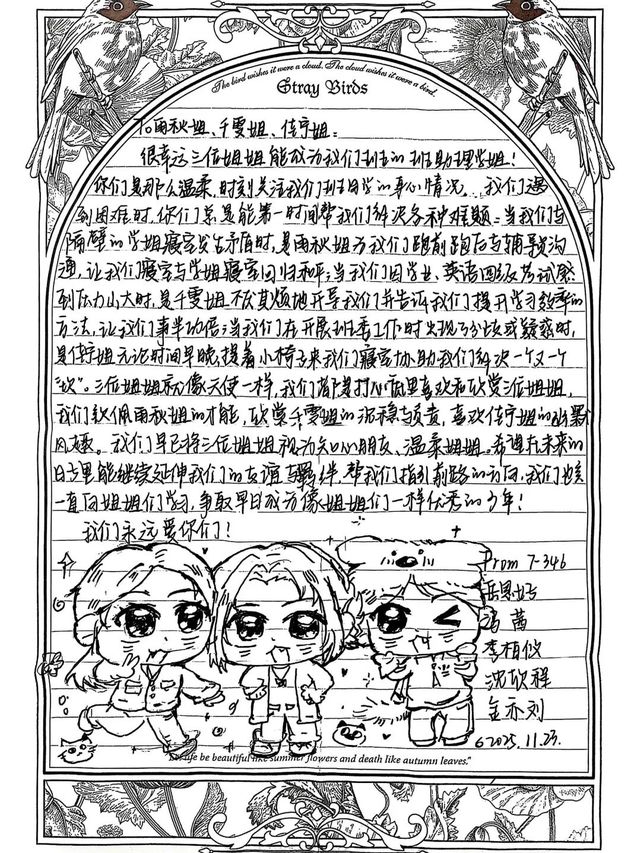 The bird wishes it were a cloud. The cloud wishes it were a bird.
Stray Birds
To雨秋姐、千雯姐、佳宁姐：
很幸运三位姐姐能成为我们班的班助理学姐！
你们是那么温柔，时刻关注我们班同学的身心情况。我们遇
到困难时，你们总是能第一时间帮我们解决各种难题：当我们与
隔壁的学姐寝室发生矛盾时，是雨秋姐为我们跑前跑后与辅导沟
通，让我们寝室与学姐寝室回归和平；当我们因学业、英语四级考试感
到压力山大时，是千雯姐不厌其烦地开导我们并告诉我们提升学习效率的
方法，让我们事半功倍；当我们在开展班委工作时出现分歧或疑惑时，
是佳宁姐无论时间早晚，提着小椅子来我们寝室协助我们解决一个又一个
“坎”。三位姐姐就像天使一样，我们都打心底里喜欢和欣赏三位姐姐，
我们钦佩雨秋姐的才能，欣赏千雯姐的沉稳与负责，喜欢佳宁姐的幽默
风趣。我们早已将三位姐姐视为知心朋友、温柔姐姐。希望在未来的
日子里能继续延伸我们的友谊与羁绊，帮我们指引前路的方向，我们也会
一直向姐姐们学习，争取早日成为像姐姐们一样优秀的少年！
我们永远爱你们！
From 7-346
冯茜
李相仪
沈欣程
金亦刘
2025.11.23.
"Let life be beautiful like summer flowers and death like autumn leaves."